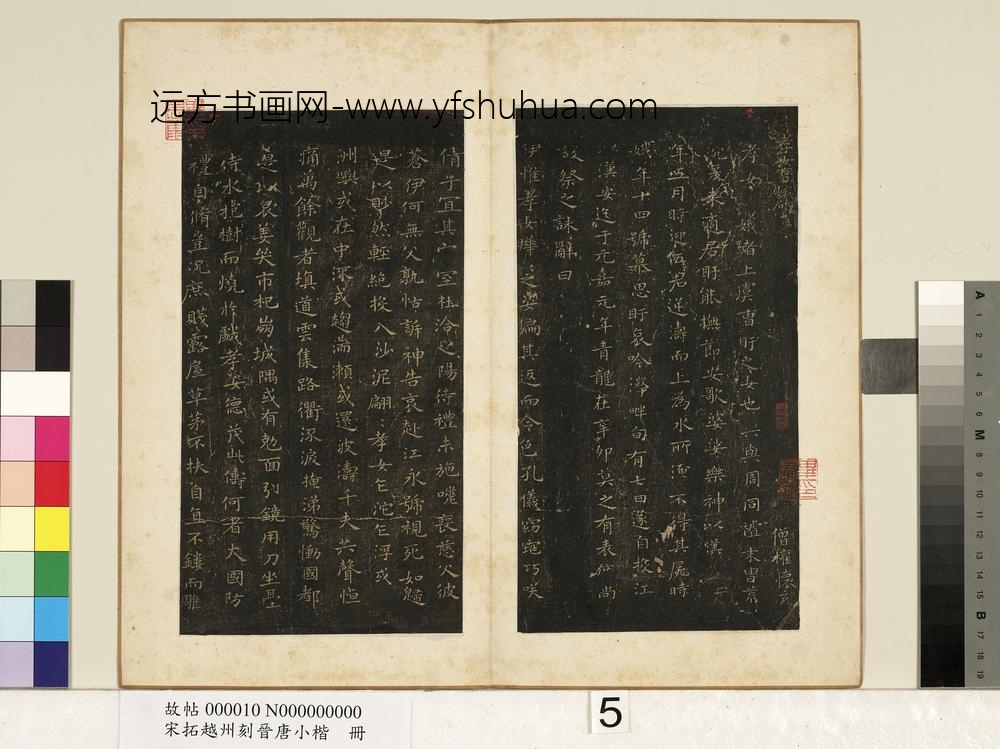 远方书画网-www.yfshuhua.com
孝女曹娥碑
僧權懷充
孝女曹娥者上虞曹盱之女也其先與周同祖末胄荒
沈爰來適居盱能撫節安歌婆娑樂神以漢安二
年五月時迎伍君逆濤而上為水所淹不得其屍時
娥年十四號慕思盱哀吟澤畔旬有七日遂自投江
以漢安迄于元嘉元年青龍在辛卯莫之有表度尚
設祭之誄辭曰
伊惟孝女曄之姿偏其返而令色孔儀窈窕巧咲
倩兮宜其家室在洽之陽待禮未施嗟喪慈父彼
蒼伊何無父孰怙訴神告哀赴江永號視死如歸
是以眇然輕絕投入沙泥翩孝女乍沉乍浮或
洲嶼或在中流或趨湍瀨或還波濤千夫失聲悼
痛萬餘觀者填道雲集路衢流淚掩涕驚慟國都
是以哀姜哭市杞崩城隅或有剋面引鏡用刀坐臺
待水抱樹而燒於戲孝女德茂此儔何者大國防
禮自脩豈況庶賤露屋草茅不扶自直不鏤而雕
故帖 000010 N000000000
宋拓越州刻晉唐小楷 冊
5
A 1 2 3 4 5 6 M 8 9 10 11 12 13 14 15 B 17 18 19